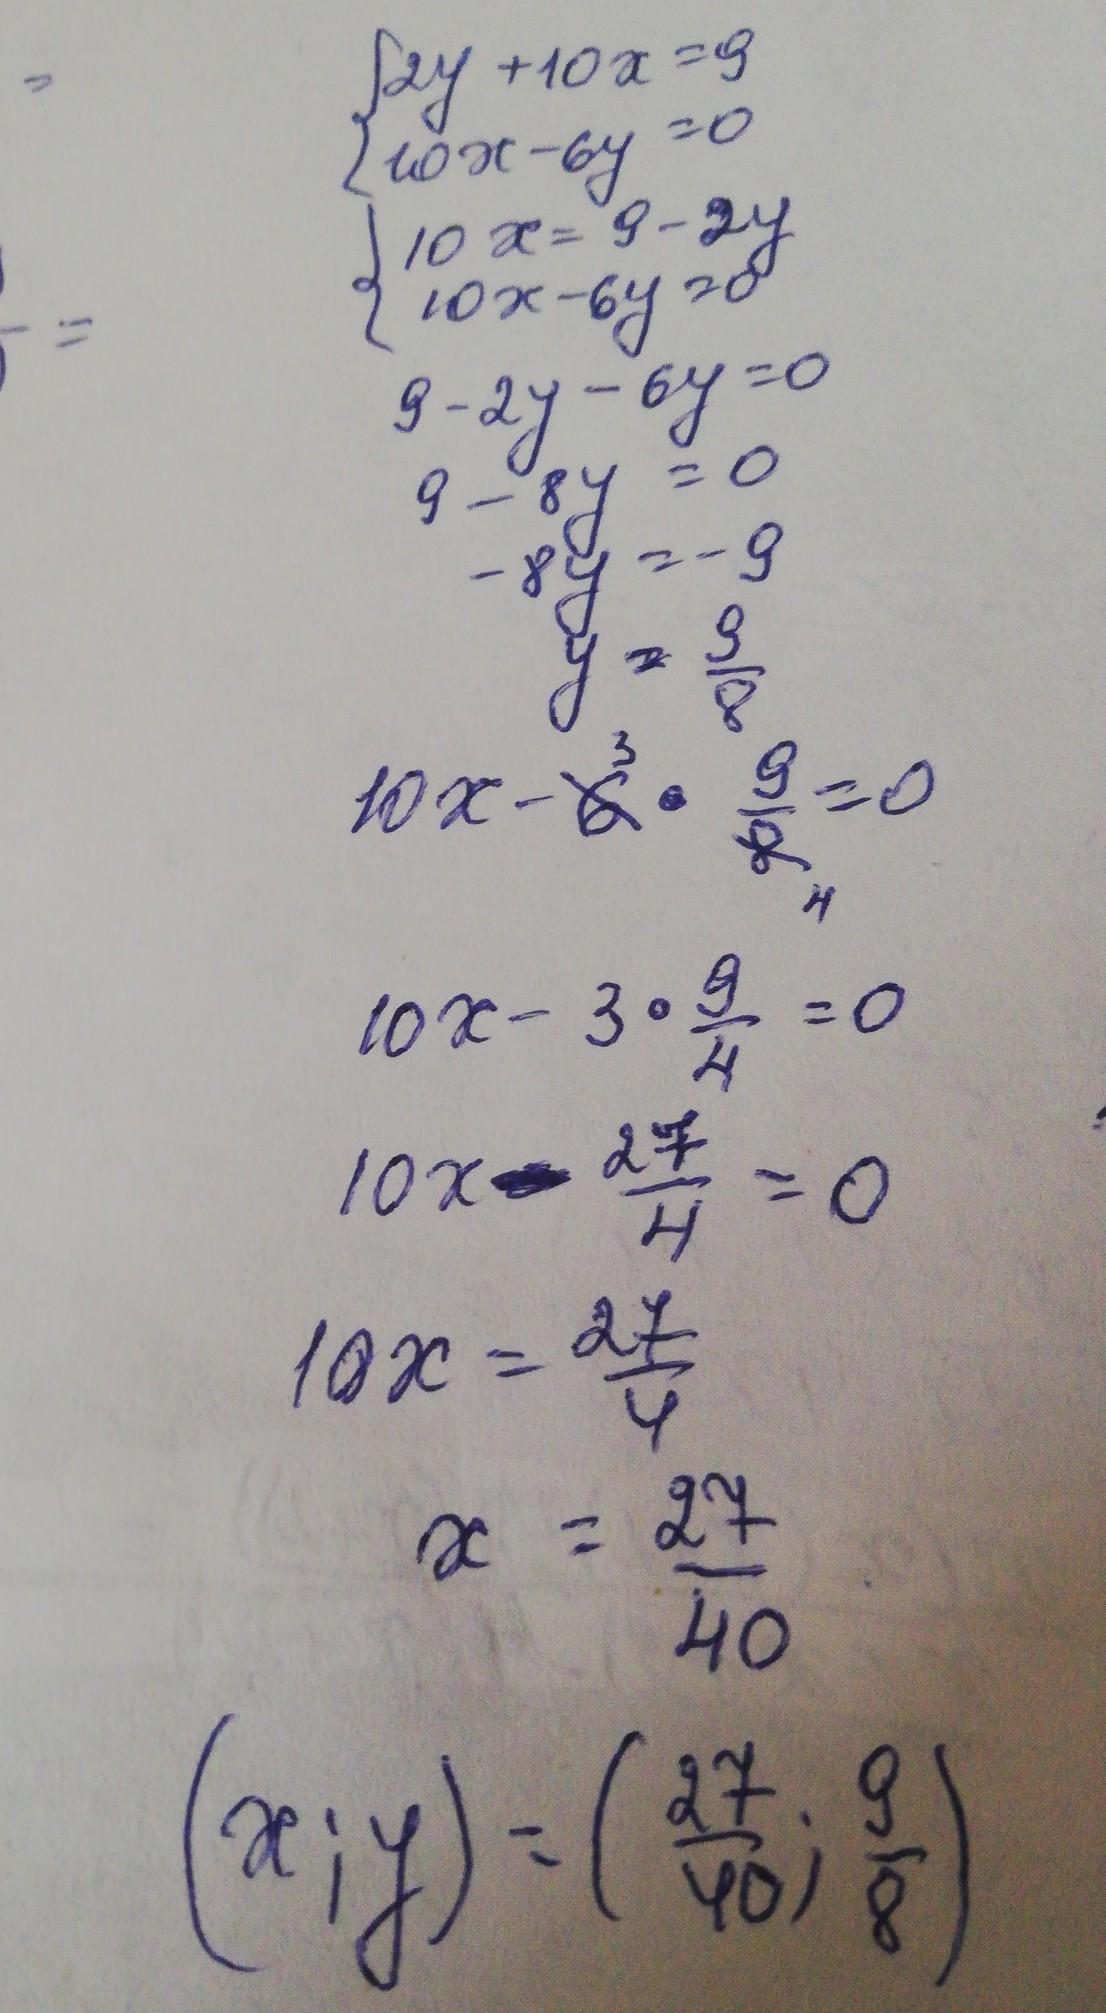 =
{2y + 10x = 9
{10x - 6y = 0
{10x = 9 - 2y
{10x - 6y = 0
=
9 - 2y - 6y = 0
9 - 8y = 0
-8y = -9
y = 9/8
10x - 6 3 • 9/8 4 = 0
10x - 3 • 9/4 = 0
10x - 27/4 = 0
10x = 27/4
x = 27/40
(x; y) = (27/40; 9/8)